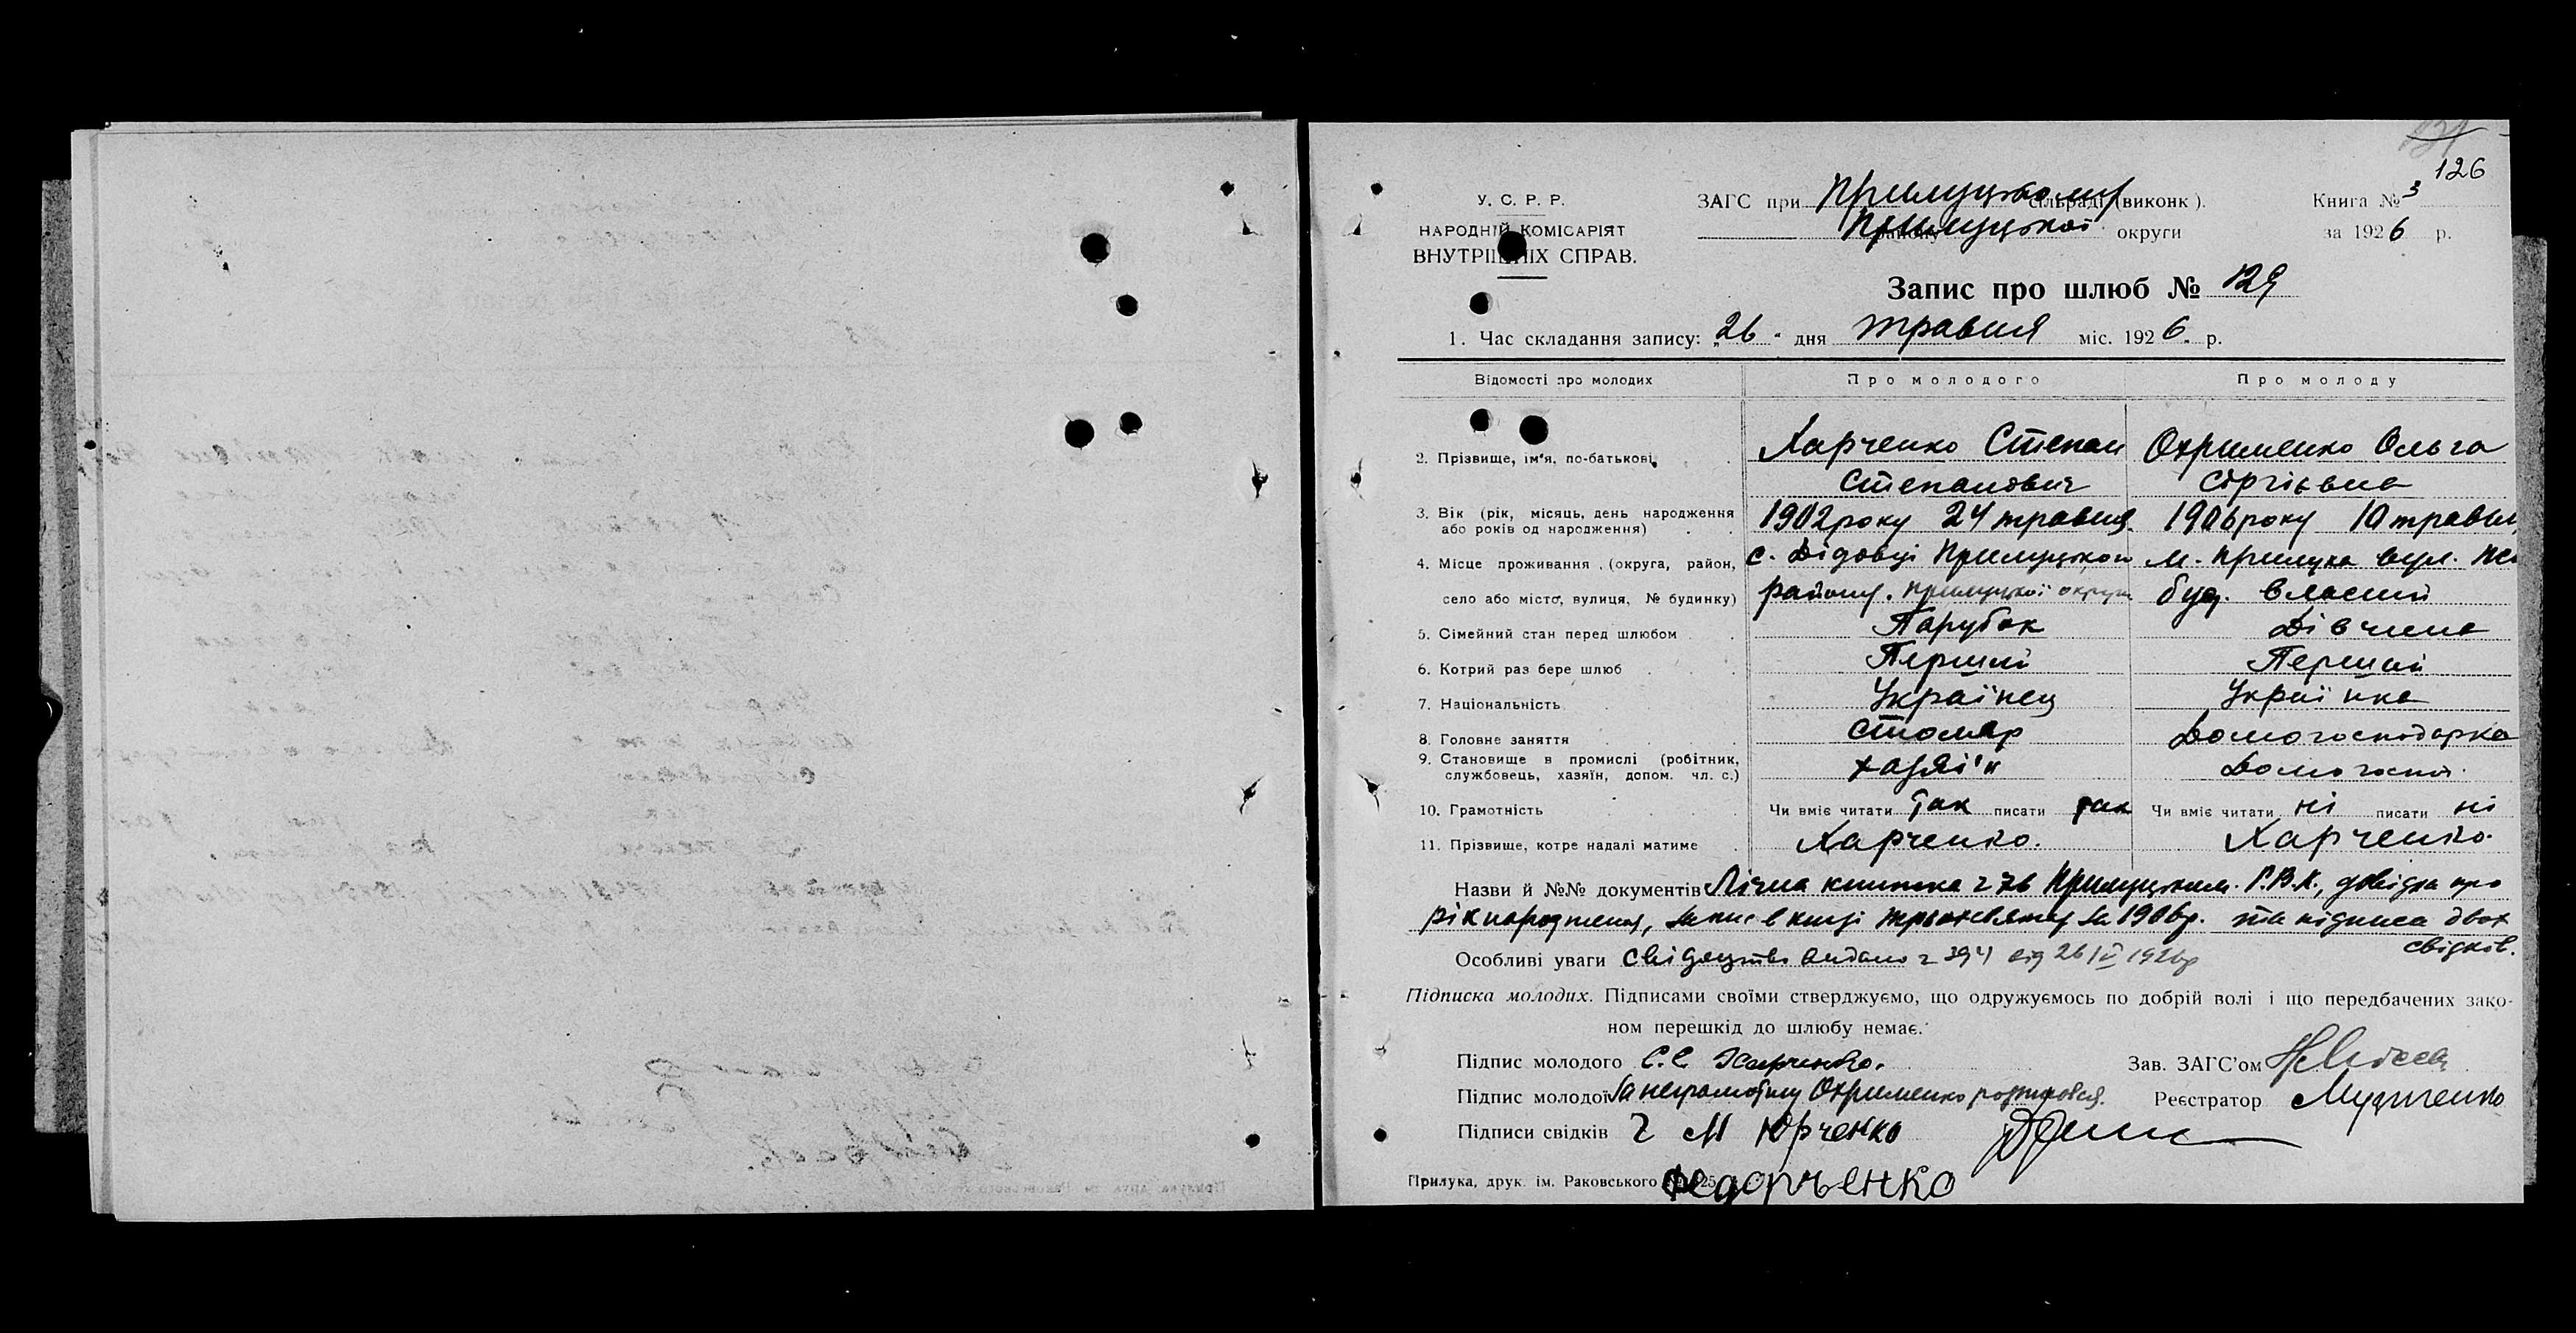 126
У. С. Р. Р.
НАРОДНІЙ КОМІСАРІЯТ
ВНУТРІШНІХ СПРАВ.
ЗАГС при Прилуцькому сільраді (виконк).
Прилуцької округи
Книга № 3
за 1926 р.
Запис про шлюб № 129
1. Час складання запису: „26" дня травня міс. 1926. р.
Відомості про молодих
Про молодого
Про молоду
2. Прізвище, ім'я, по-батькові
Харченко Степан
Степанович
Охрименко Ольга
Сергієвна
3. Вік (рік, місяць, день народження
або років од народження)
1902 року 24 травня
1906 року 10 травня
4. Місце проживання (округа, район,
село або місто, вулиця, № будинку)
с. Дідовці Прилуцького
району. Прилуцької округи
м. Прилука вул.
буд. власний
5. Сімейний стан перед шлюбом
Парубок
Дівчина
6. Котрий раз бере шлюб
Перший
Перший
7. Національність
Українец
Українка
8. Головне заняття
Столяр
Домогосподарка
9. Становище в промислі (робітник,
службовець, хазяїн, допом. чл. с.)
хазяїн
Домогосп.
10. Грамотність
Чи вміє читати так писати так
Чи вміє читати ні писати ні
11. Прізвище, котре надалі матиме
Харченко.
Харченко.
Назви й №№ документів Лічна книжка 276 Прилуцьким. Р.В.К., довідка про
рік народження, запис в книзі за 1906 р. та підписа двох
свідків.
Особливі уваги Свідоцтво видано 394 від 26/V 1926 р
Підписка молодих. Підписами своїми стверджуємо, що одружуємось по добрій волі і що передбачених зако-
ном перешкід до шлюбу немає.
Підпис молодого С. С. Харченко.
Зав. ЗАГС'ом
Підпис молодої За неграмотну Охрименко розписався.
Реєстратор
Підписи свідків Г М Юрченко
Прилука, друк. ім. Раковського 25
Федорченко